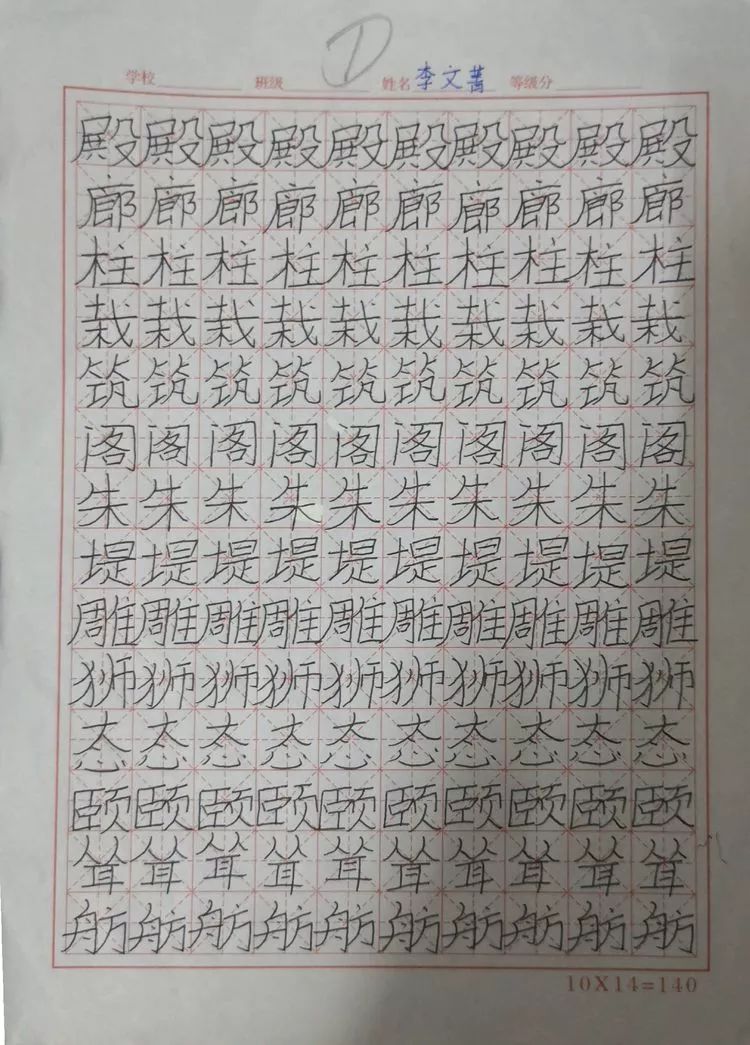 ①
学校 班级 姓名 李文菁 等级分
殿殿殿殿殿殿殿殿殿殿
廊廊廊廊廊廊廊廊廊廊
柱柱柱柱柱柱柱柱柱柱
栽栽栽栽栽栽栽栽栽栽
筑筑筑筑筑筑筑筑筑筑
阁阁阁阁阁阁阁阁阁阁
朱朱朱朱朱朱朱朱朱朱
堤堤堤堤堤堤堤堤堤堤
雕雕雕雕雕雕雕雕雕雕
狮狮狮狮狮狮狮狮狮狮
态态态态态态态态态态
颐颐颐颐颐颐颐颐颐颐
耸耸耸耸耸耸耸耸耸耸
舫舫舫舫舫舫舫舫舫舫
10X14=140